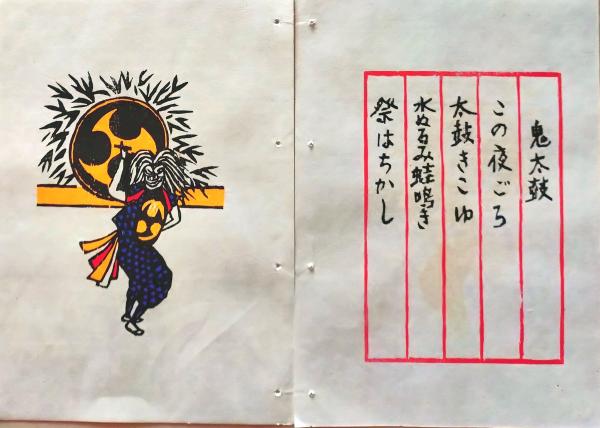 鬼太鼓
この夜ごろ
太鼓きこゆ
水ぬるみ蛙鳴き
祭はちかし